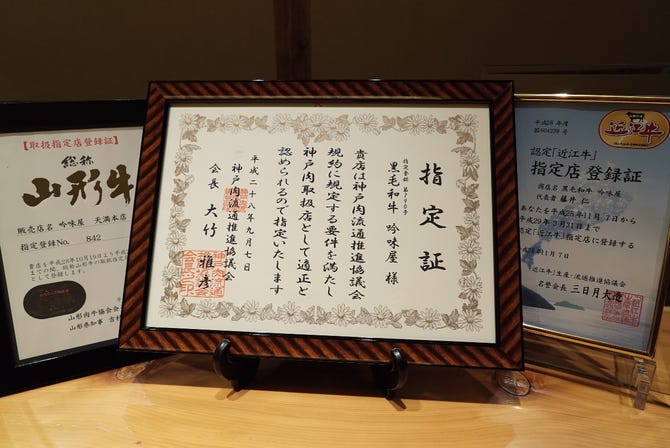 【取扱指定店登録証】
総称
山形牛
販売店名 吟味屋 天満本店
指定登録No. 842
貴店を平成28年10月19日より平成
までの間、総称山形牛の取扱指定店
として登録します。
山形肉牛協会会
山形県知事 吉村
指定証
指定番号
黒毛和牛 吟味屋 様
貴店は神戸肉流通推進協議会
規約に規定する要件を満たし
神戸肉取扱店として適正と
認められるので指定いたします
平成二十八年九月七日
神戸肉流通推進協議会
会長 大竹 雅彦
平成28年度
第604239号
近江牛
認定「近江牛」
指定店 登録証
商店名 黒毛和牛 吟味屋
代表者 藤井 仁
あなたを平成28年11月7日から
平成29年3月31日まで
認定「近江牛」指定店に登録する
年11月7日
「近江牛」生産・流通推進協議会
名誉会長 三日月大造